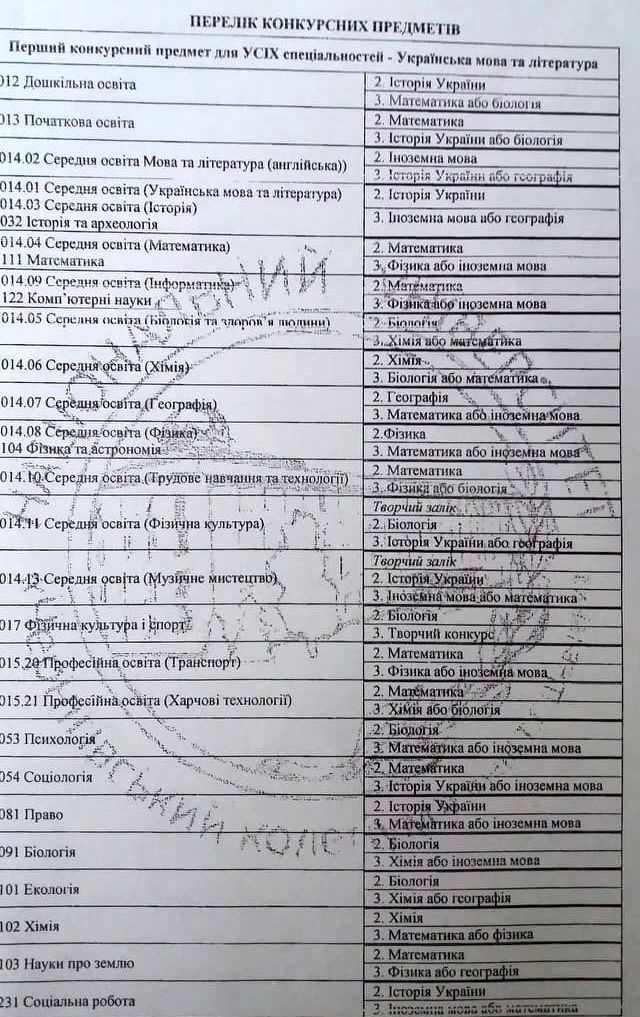 ПЕРЕЛІК КОНКУРСНИХ ПРЕДМЕТІВ
Перший конкурсний предмет для УСІХ спеціальностей - Українська мова та література
012 Дошкільна освіта
2. Історія України
3. Математика або біологія
013 Початкова освіта
2. Математика
3. Історія України або біологія
014.02 Середня освіта Мова та література (англійська))
2. Іноземна мова
3. Історія України або географія
014.01 Середня освіта (Українська мова та література)
014.03 Середня освіта (Історія)
032 Історія та археологія
2. Історія України
3. Іноземна мова або географія
014.04 Середня освіта (Математика)
111 Математика
2. Математика
3. Фізика або іноземна мова
014.09 Середня освіта (Інформатика)
122 Комп'ютерні науки
2. Математика
3. Фізика або іноземна мова
014.05 Середня освіта (Біологія та здоров'я людини)
2. Біологія
3. Хімія або математика
014.06 Середня освіта (Хімія)
2. Хімія
3. Біологія або математика
014.07 Середня освіта (Географія)
2. Географія
3. Математика або іноземна мова
014.08 Середня освіта (Фізика)
104 Фізика та астрономія
2.Фізика
3. Математика або іноземна мова
014.10 Середня освіта (Трудове навчання та технології)
2. Математика
3. Фізика або біологія
014.11 Середня освіта (Фізична культура)
Творчий залік
2. Біологія
3. Історія України або географія
014.13 Середня освіта (Музичне мистецтво)
Творчий залік
2. Історія України
3. Іноземна мова або математика
017 Фізична культура і спорт
2. Біологія
3. Творчий конкурс
015.20 Професійна освіта (Транспорт)
2. Математика
3. Фізика або іноземна мова
015.21 Професійна освіта (Харчові технології)
2. Математика
3. Хімія або біологія
053 Психологія
2. Біологія
3. Математика або іноземна мова
054 Соціологія
2. Математика
3. Історія України або іноземна мова
081 Право
2. Історія України
3. Математика або іноземна мова
091 Біологія
2. Біологія
3. Хімія або іноземна мова
101 Екологія
2. Біологія
3. Хімія або географія
102 Хімія
2. Хімія
3. Математика або фізика
103 Науки про землю
2. Математика
3. Фізика або географія
231 Соціальна робота
2. Історія України
3. Іноземна мова або математика